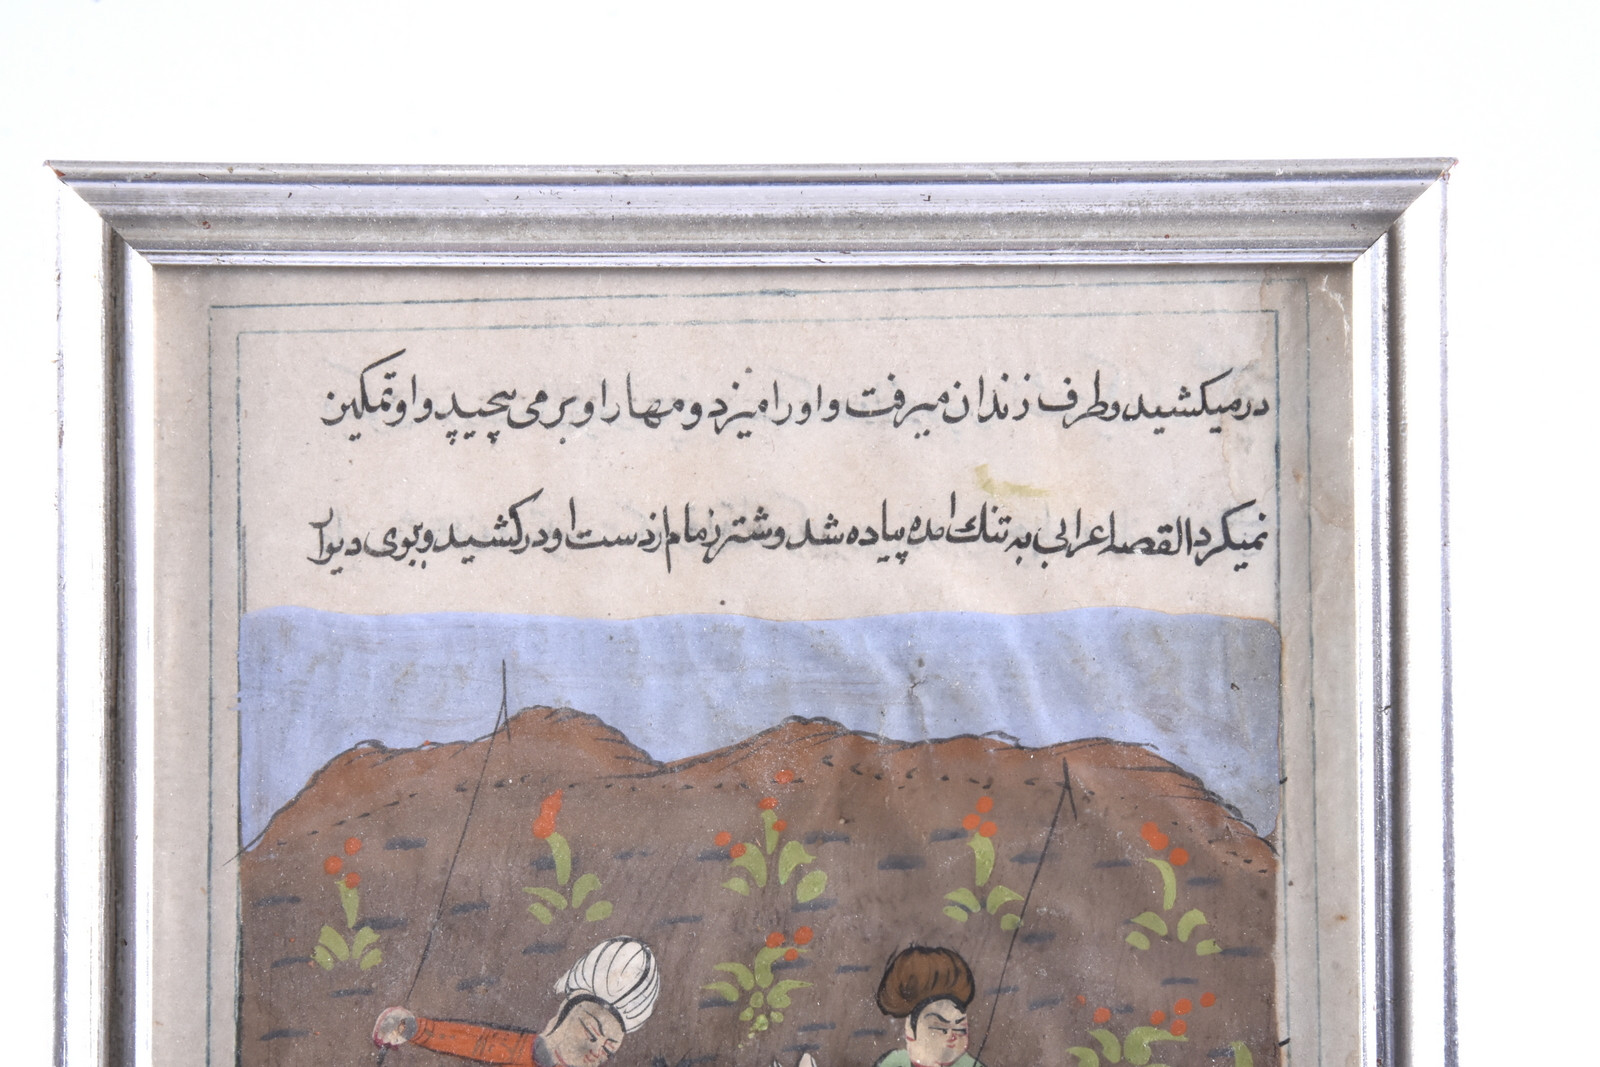 درمیکشید وطرف زندان میرفت و او را میزد و مهار او بر می پیچید و او تمکین
نمیکرد القصه اعرابی به تنك امده پیاده شد و شتر زمام از دست او درکشید و بوی دیوار